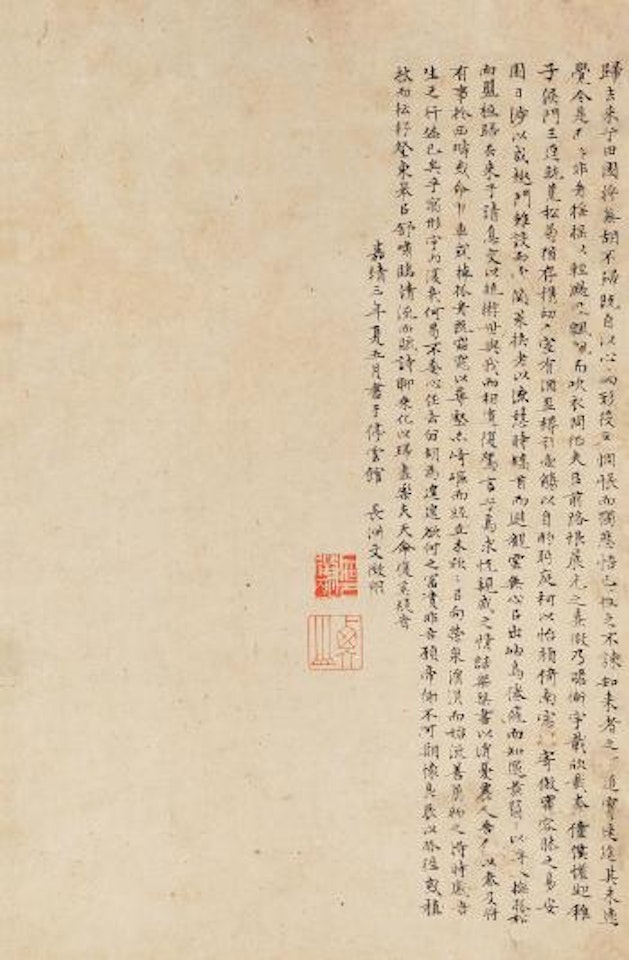 歸去來兮田園將蕪胡不歸既自以心為形役奚惆悵而獨悲悟已往之不諫知來者之可追寔迷途其未遠
覺今是而昨非舟搖搖以輕颺風飄飄而吹衣問征夫以前路恨晨光之熹微乃瞻衡宇載欣載奔僮僕懽迎稚
子候門三逕就荒松菊猶存攜幼入室有酒盈樽引壺觴以自酌眄庭柯以怡顏倚南窗以寄傲審容膝之易安
園日涉以成趣門雖設而常關策扶老以流憩時矯首而遐觀雲無心以出岫鳥倦飛而知還景翳翳以將入撫孤松
而盤桓歸去來兮請息交以絕游世與我而相遺復駕言兮焉求悅親戚之情話樂琴書以消憂農人告余以春及將
有事於西疇或命巾車或棹孤舟既窈窕以尋壑亦崎嶇而經丘木欣欣以向榮泉涓涓而始流善萬物之得時感吾
生之行休已矣乎寓形宇內復幾何曷不委心任去留胡為遑遑欲何之富貴非吾願帝鄉不可期懷良辰以孤往或植
杖而耘耔登東皋以舒嘯臨清流而賦詩聊乘化以歸盡樂夫天命復奚疑
嘉靖三年夏五月書于停雲館 長洲文徵明